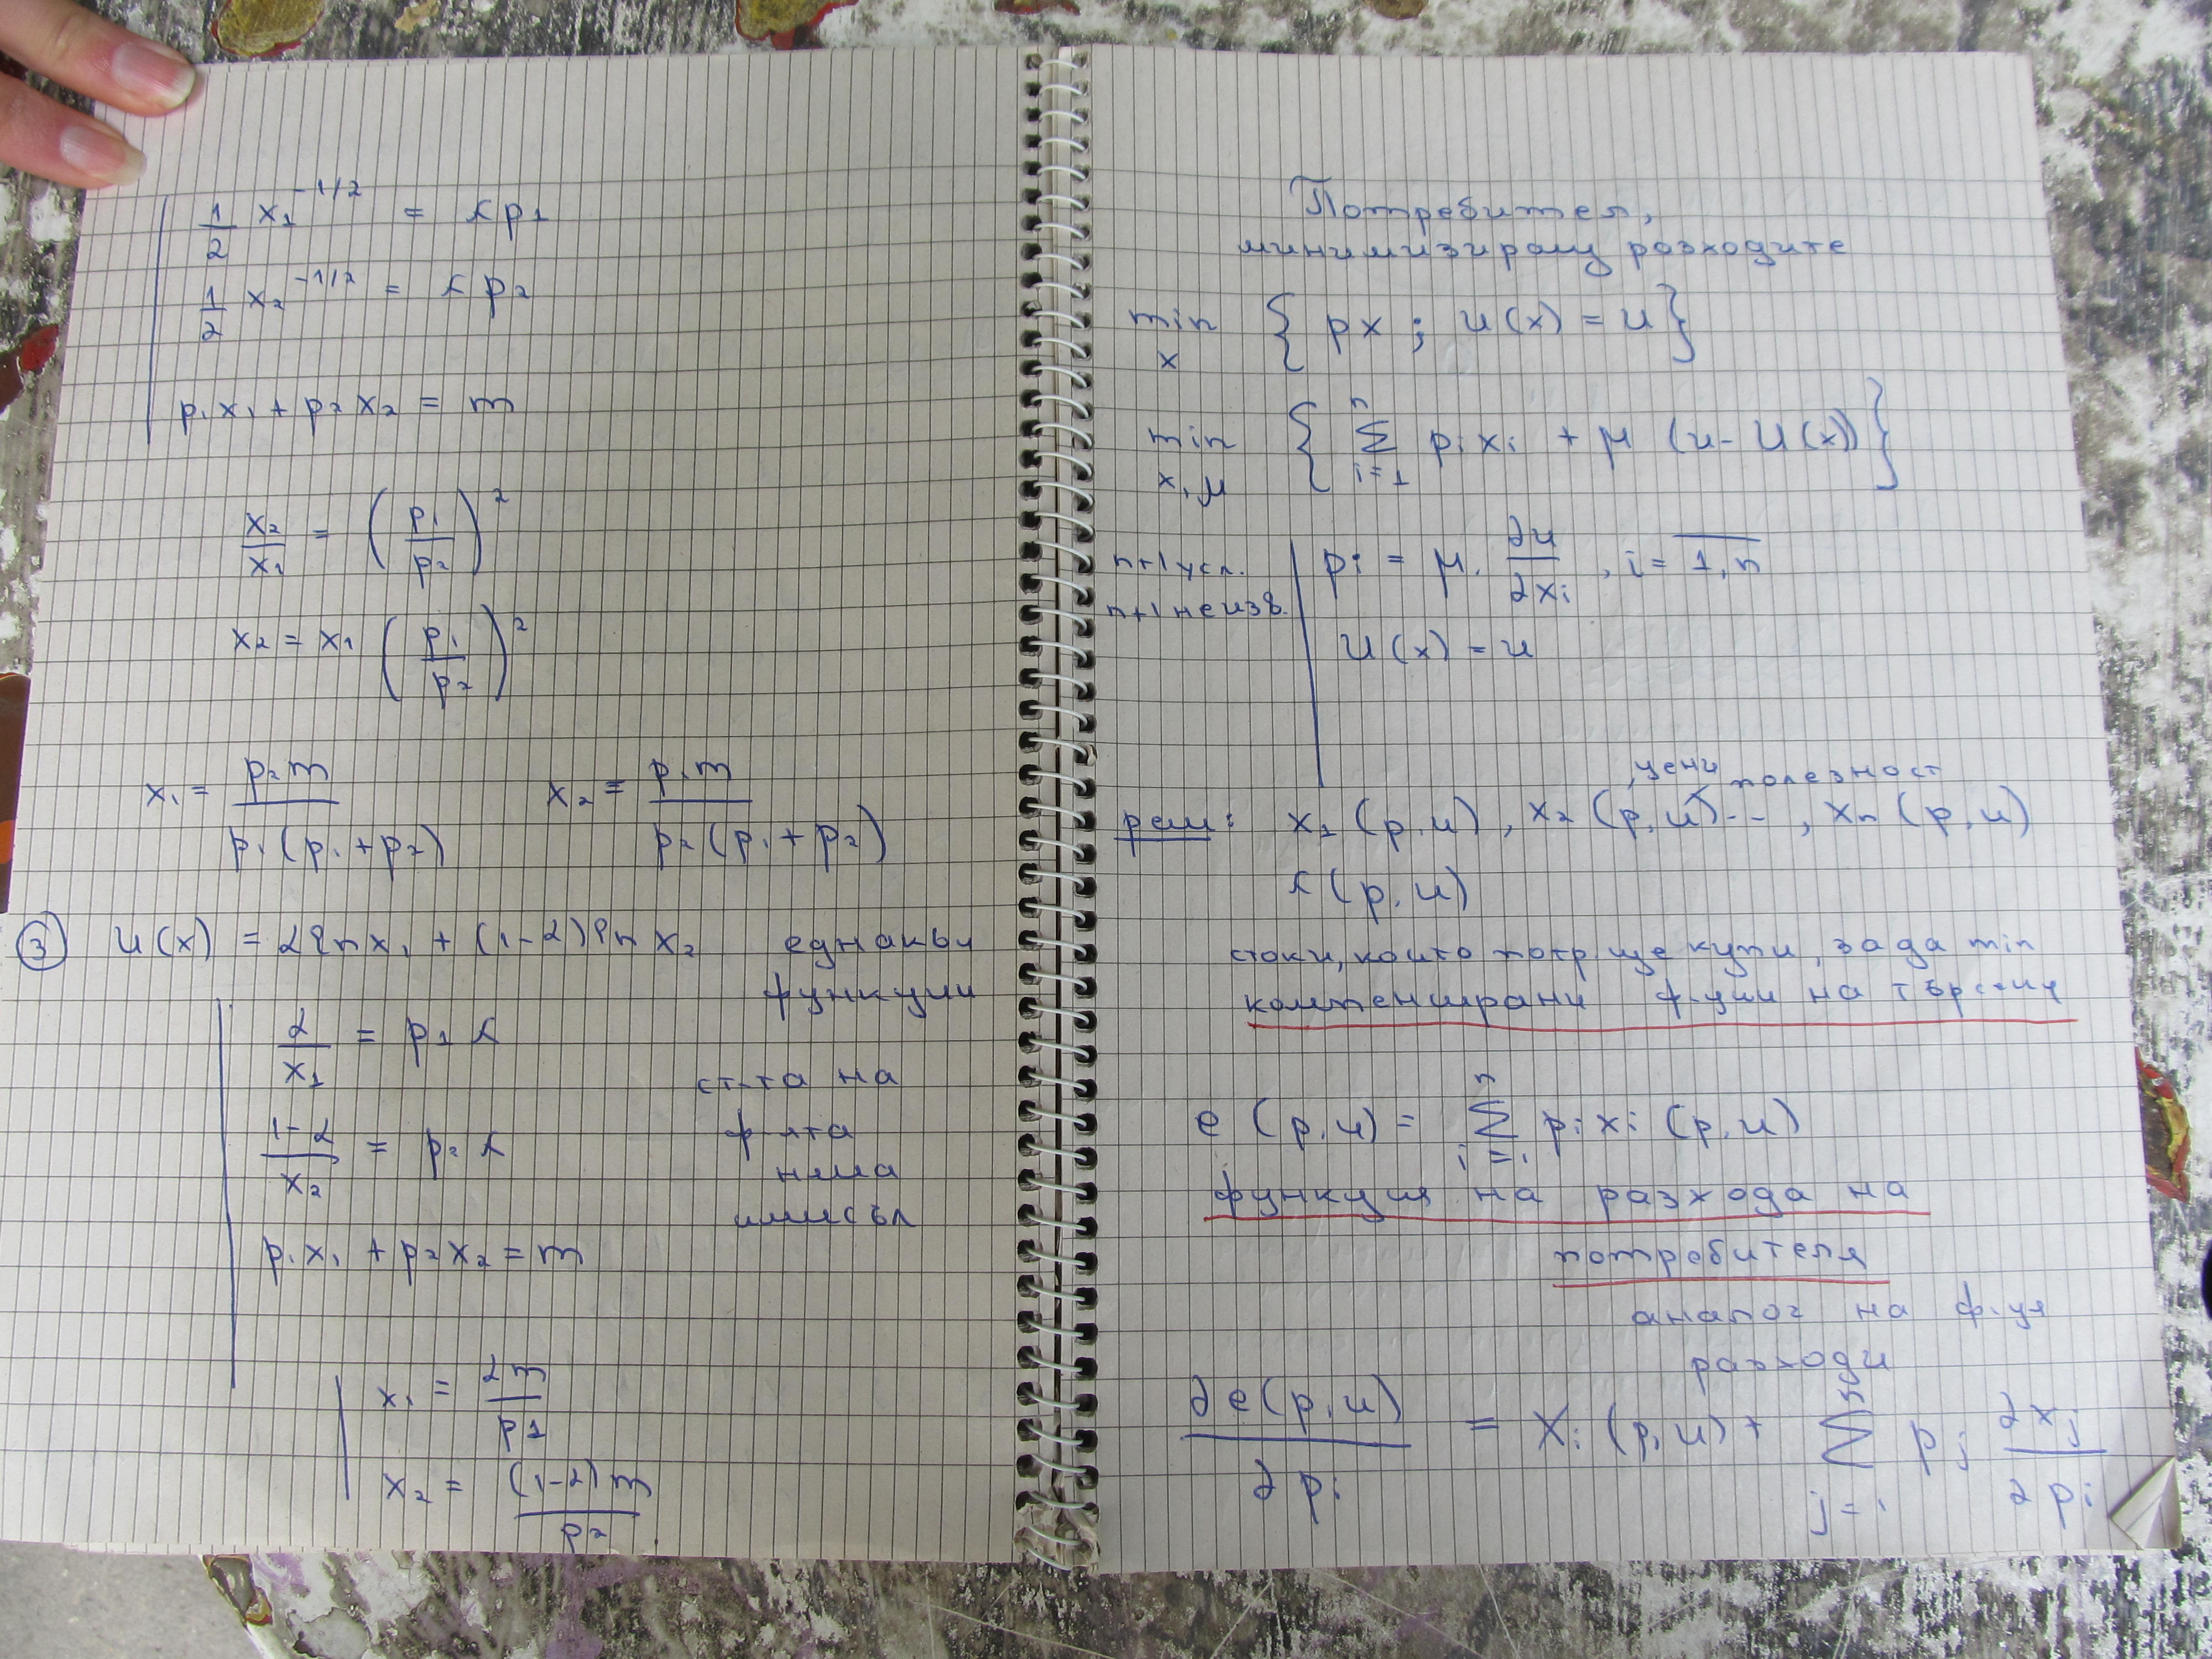 1/2 x₁^(-1/2) = λp₁
1/2 x₂^(-1/2) = λp₂
p₁x₁ + p₂x₂ = m
x₂/x₁ = (p₁/p₂)²
x₂ = x₁ (p₁/p₂)²
x₁ = p₂m / p₁(p₁+p₂)    x₂ = p₁m / p₂(p₁+p₂)
③ u(x) = α ln x₁ + (1-α) ln x₂    еднакви
функции
α/x₁ = p₁λ
ст-та на
(1-α)/x₂ = p₂λ
ф-ята
няма
смисъл
p₁x₁ + p₂x₂ = m
x₁ = αm/p₁
x₂ = (1-α)m/p₂
Потребител,
минимизиращ разходите
min x { px ; u(x) = u }
min x,μ { Σ i=1 n pᵢxᵢ + μ (u - u(x)) }
n+1 усл.
n+1 неизв.
pᵢ = μ. ∂u/∂xᵢ , i = 1,n
u(x) = u
цени полезност
реш: x₁(p,u), x₂(p,u)..., xₙ(p,u)
λ(p,u)
стоки, които потр. ще купи, за да min
компенсирани ф-ции на търсене
e(p,u) = Σ i=1 n pᵢxᵢ(p,u)
функция на разхода на
потребителя
аналог на ф-ця
разходи
∂e(p,u)/∂pᵢ = xᵢ(p,u) + Σ j=1 n pⱼ ∂xⱼ/∂pᵢ